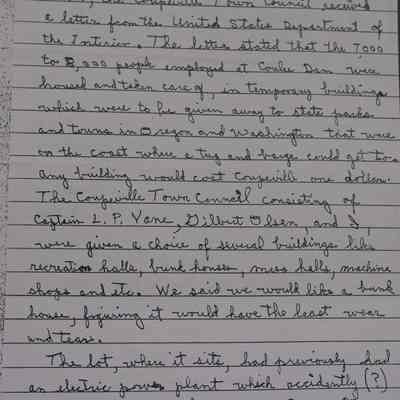 , the Coupeville Town Council received
a letter from the United States Department of
the Interior. The letter stated that the 7,000
to 8,000 people employed at Coulee Dam were
housed and taken care of, in temporary buildings
which were to be given away to state parks
and towns in Oregon and Washington that were
on the coast where a tug and barge could get to.
Any building would cost Coupeville one dollar.
The Coupeville Town Council consisting of
Captain L. P. Vane, Gilbert Olsen, and I,
were given a choice of several buildings like
recreation halls, bunk houses, mess halls, machine
shops and etc. We said we would like a bunk
house, figuring it would have the least wear
and tear.
The lot, where it sits, had previously had
an electric power plant which accidently (?)